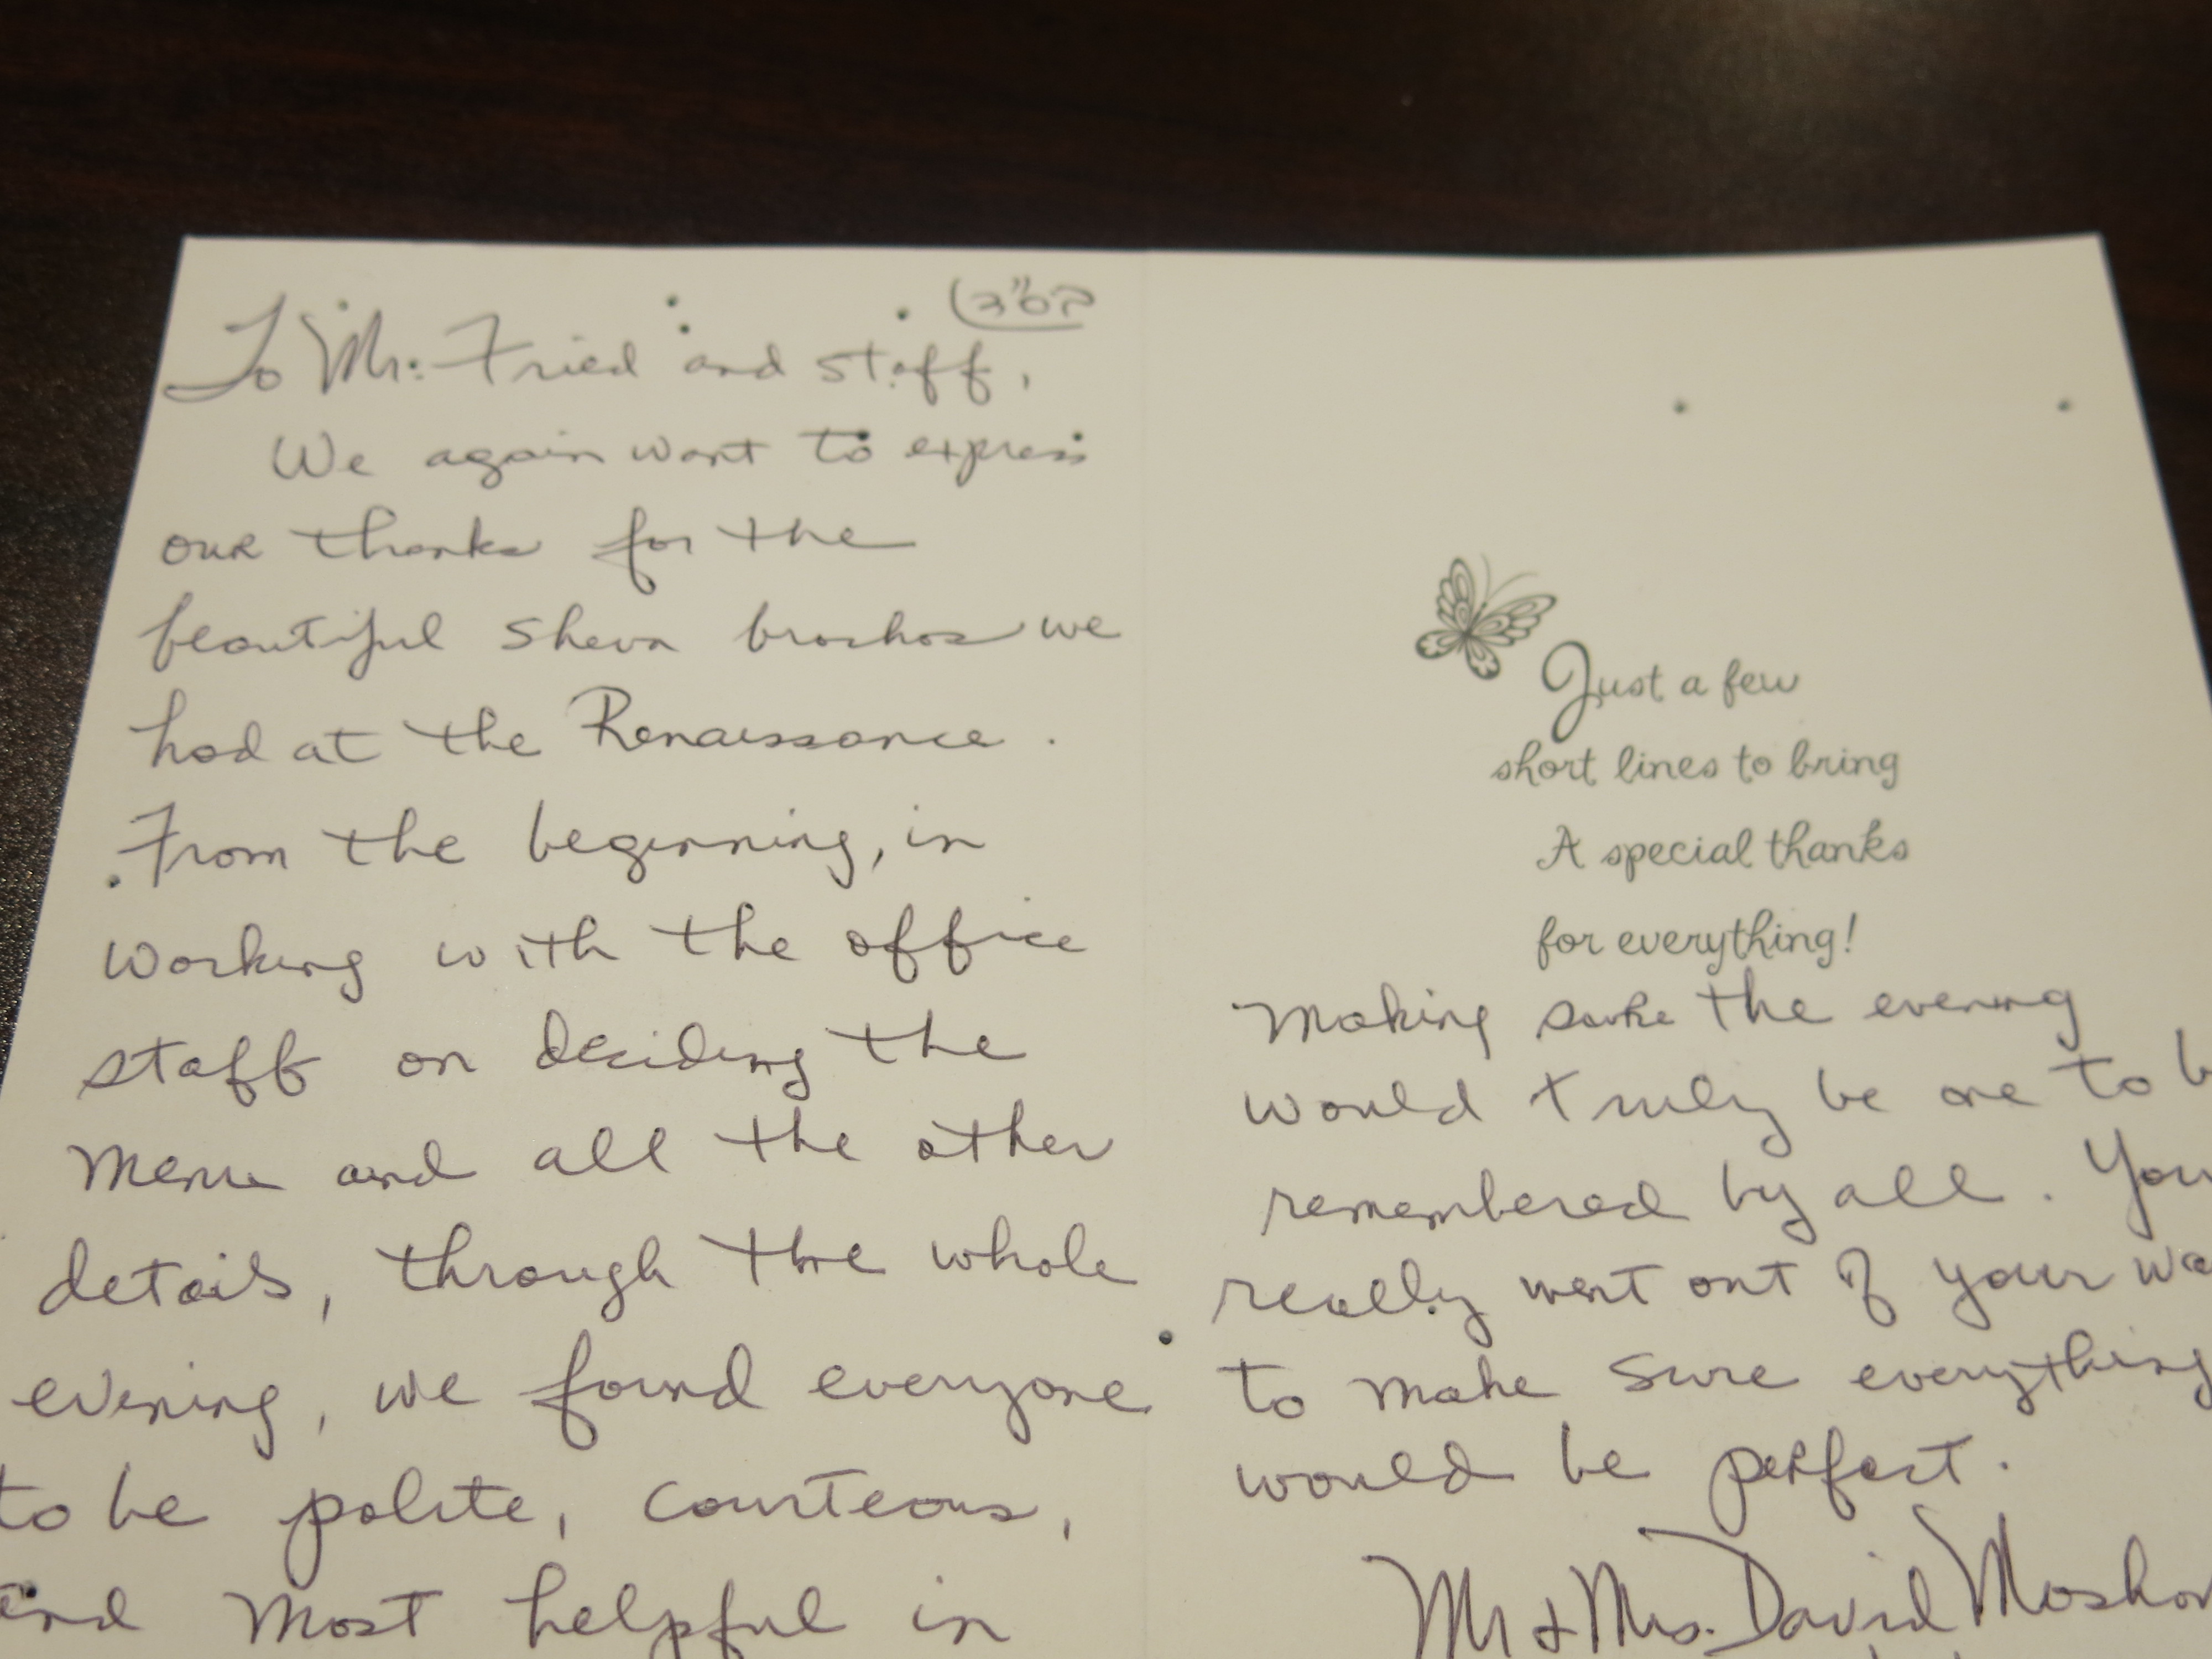 To Mr. Fried and staff,
We again want to express
our thanks for the
beautiful Sheva brochos we
had at the Renaissance.
From the beginning, in
working with the office
staff on deciding the
menu and all the other
details, through the whole
evening, we found everyone
to be polite, courteous,
and most helpful in
Just a few
short lines to bring
A special thanks
for everything!
making sure the evening
would truly be one to b
remembered by all. You
really went out of your wa
to make sure everything
would be perfect.
Mr & Mrs. David Moskov